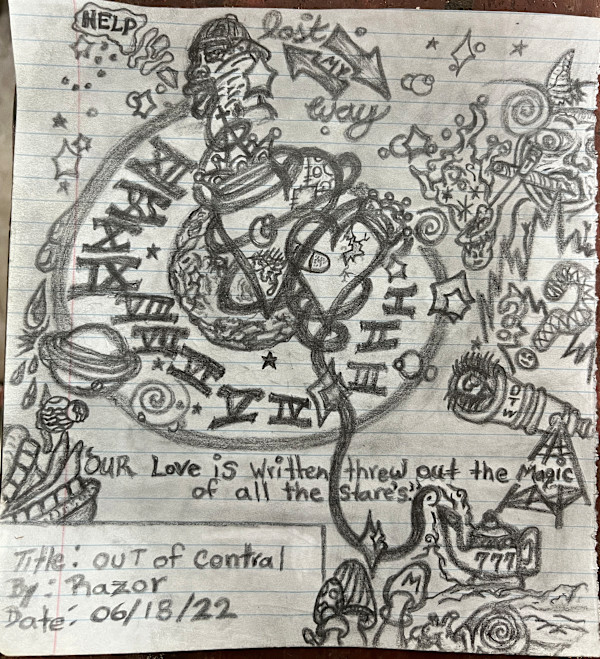 HELP
lost
MY
way
XII
XI
X
IX
VIII
VII
VI
V
IV
III
II
I
OTW
"OUR Love is written threw out the Magic
of all the stare's"
777
M
Title: OUT of Contral
By: Razor
Date: 06/18/22